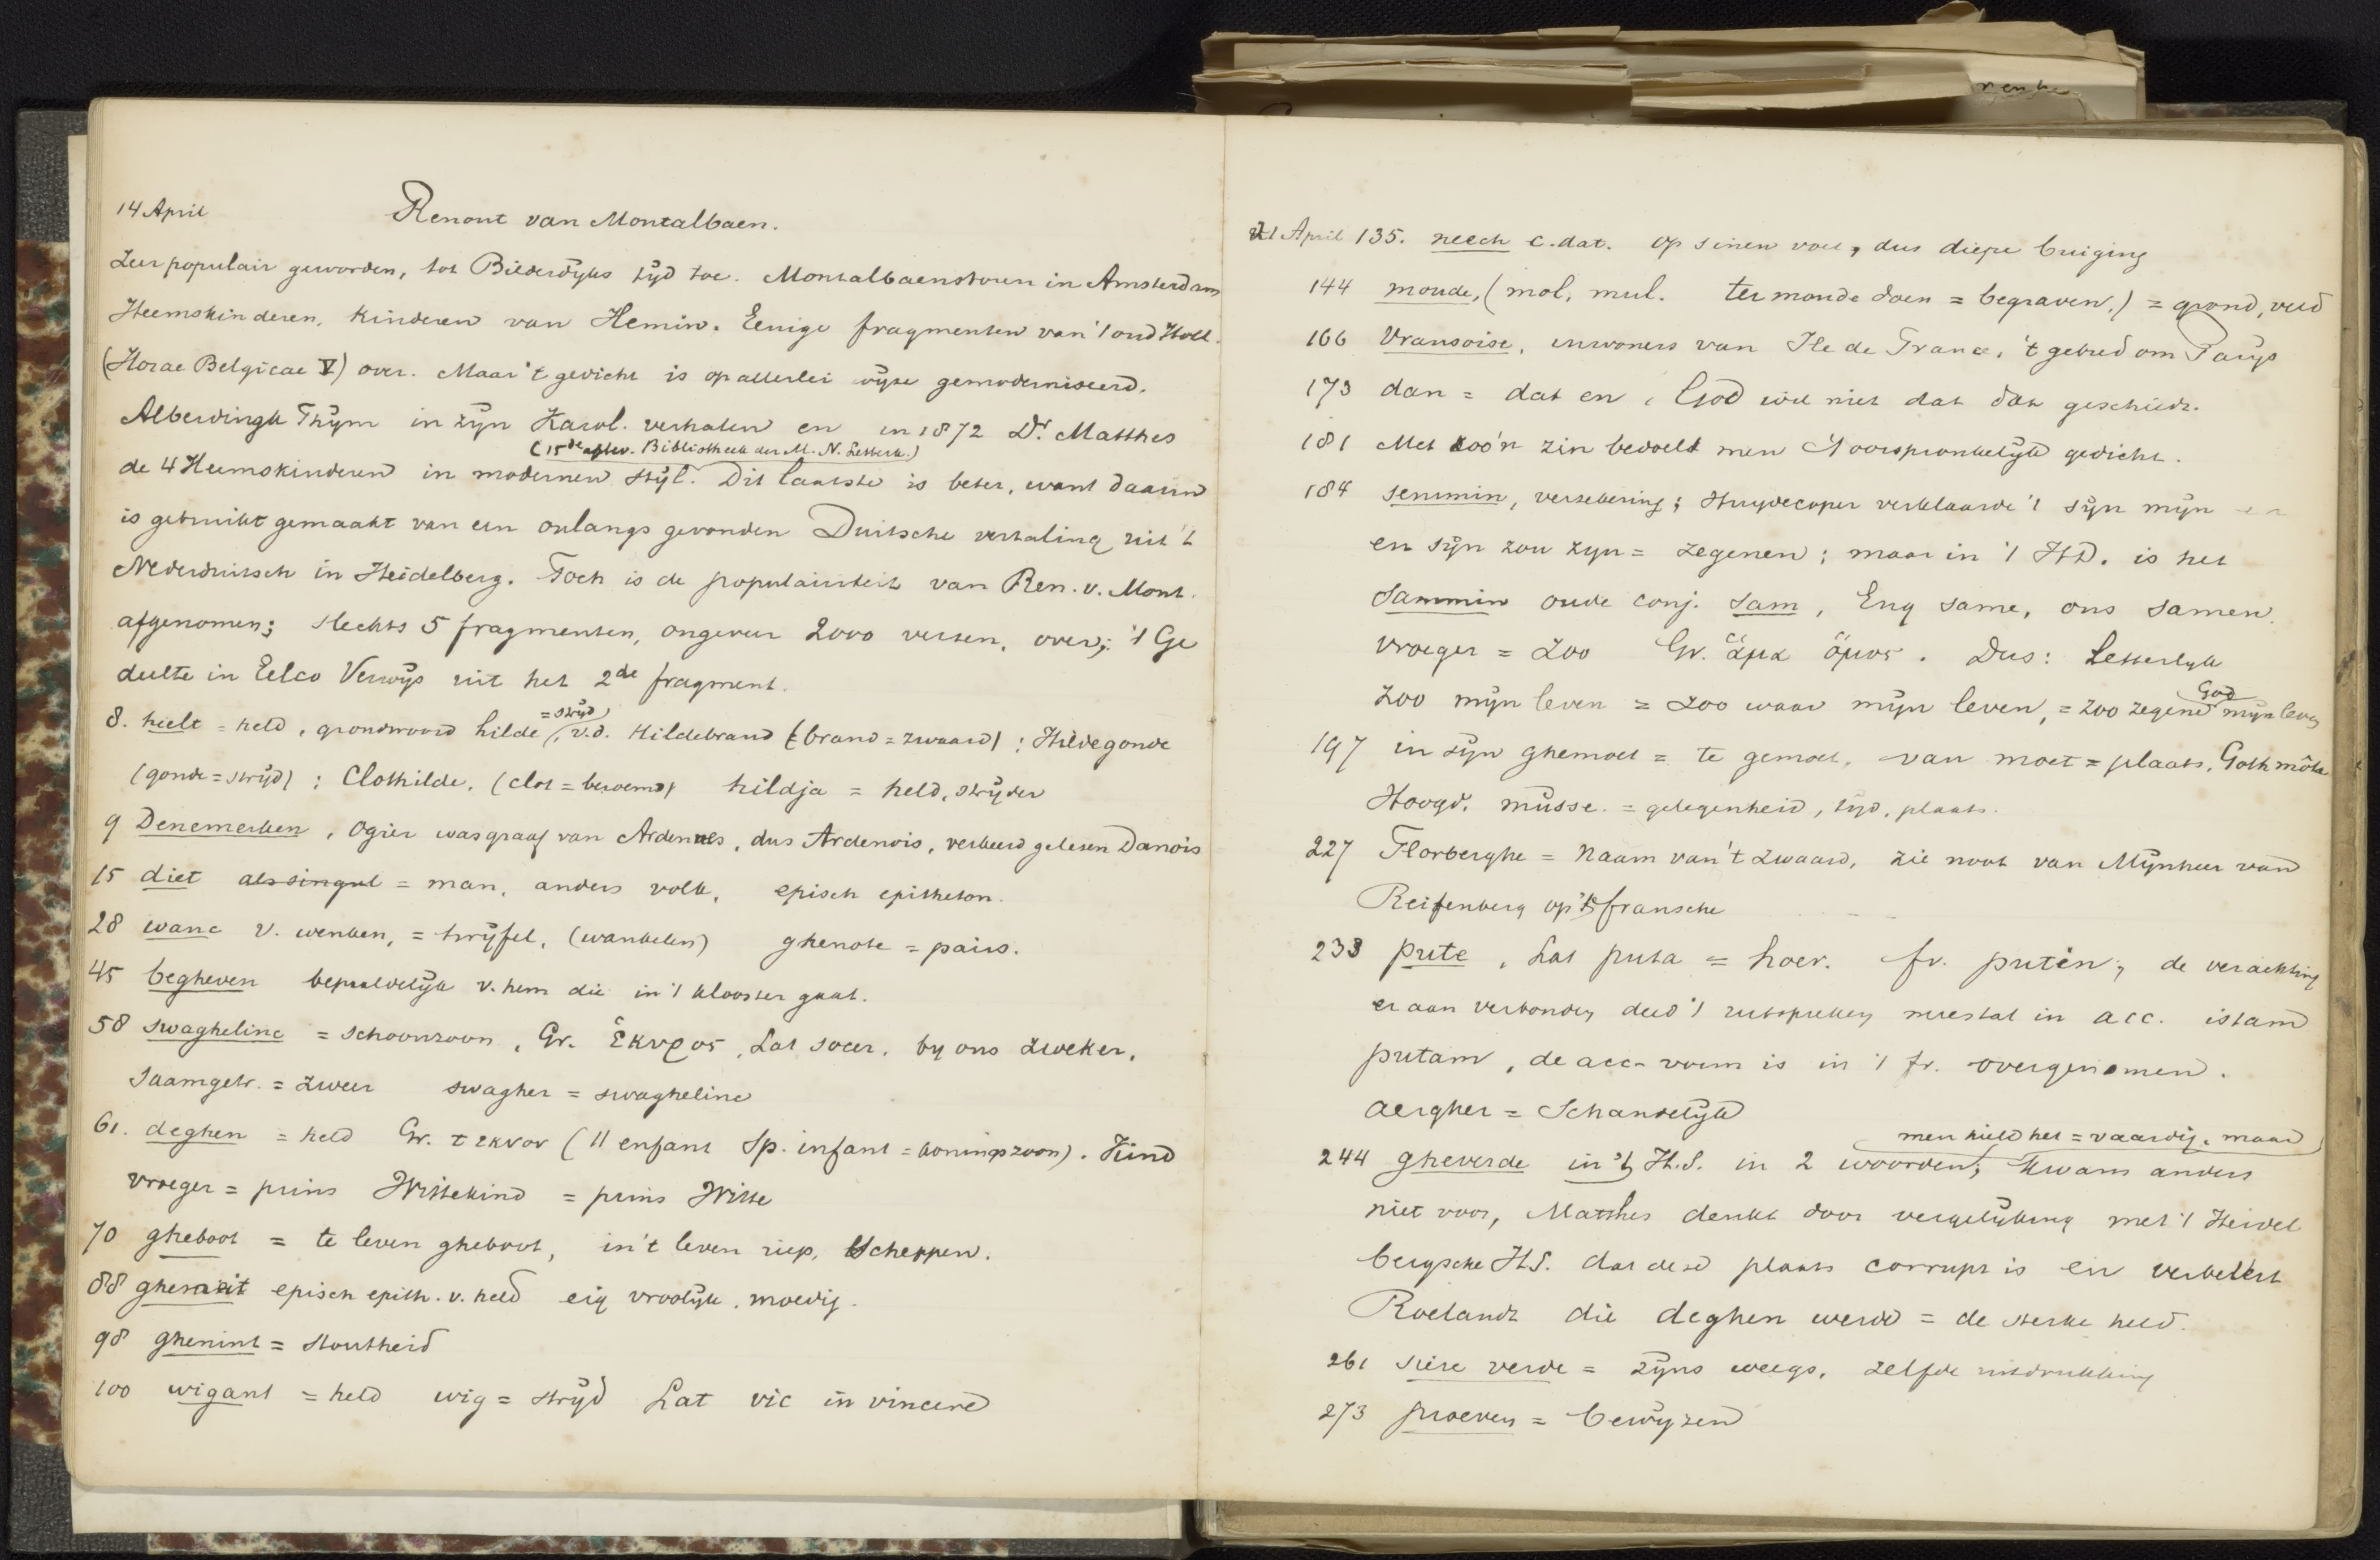 14 April Renout van Montalbaen.
Zeer populair geworden, tot Bilderdyks tÿd toe. Montalbaenstoren in Amsterdam
Heemskinderen, kinderen van Hemin. Eenige fragmenten van 't oud Holl.
(Horae Belgicae V) over. Maar 't gedicht is op allerlei wÿze gemoderniseerd.
Alberdingk Thÿm in zÿn Karol. verhalen en in 1872 Dr. Matthes
(15de aflev. Bibliotheek der M. N. Letterk.)
de 4 Heemskinderen in modernen stÿl. Dit laatste is beter, want daarin
is gebruikt gemaakt van een onlangs gevonden Duitsche vertaling uit 't
Nederduitsch in Heidelberg. Toch is de populairiteit van Ren. v. Mont.
afgenomen; slechts 5 fragmenten, ongeveer 2000 verzen, over; 't Ge
deelte in Eelco Verwÿs uit het 2de fragment.
8. heelt = held, grondwoord hilde =strÿd, v.d. Hildebrand (brand = zwaard); Hildegonde
(gonde = strÿd); Clothilde, (clot = beroemd) hildja = held, strÿder
9 Denemerken, Ogier was graaf van Ardennes, dus Ardenois, verkeerd gelezen Danois
15 diet als singul = man, anders volk, episch epitheton.
28 wanc v. wenken, = twÿfel, (wankelen) ghenote = pairs.
45 begheven bepaaldelÿk v. hem die in 't klooster gaat.
58 swagheline = schoonzoon, Gr. ἑκυρος, Lat socer, by ons zweker,
saamgetr. = zweer swagher = swagheline
61. deghen = held Gr. τεκνον (11 enfant Sp. infant = koningszoon). Kind
vroeger = prins Wittekind = prins Witte
70 gheboot = te leven gheboot, in't leven riep, scheppen.
88 ghemeit episch epith. v. held eig vroolÿk, moedig.
98 ghenint = stoutheid
100 wigant = held wig = strÿd Lat vic in vincere
21 April 135. neech c. dat. op sinen voet, dus diepe buiging
144 moude, (mol, mul. ter moude doen = begraven.) = grond, veld
166 Vransoise, inwoners van Ile de France, 't gebied om Parÿs
173 dan = dat en, God wil niet dat dat geschiedt.
181 Met zoo'n zin bedoelt men 't oorspronkelÿk gedicht.
184 semmin, verzekering; Huydecoper verklaarde 't sÿn mÿn
en sÿn zou zyn = zegenen; maar in 't HD. is het
sammin oude conj. sam, Eng same, ons samen.
vroeger = zoo Gr. ἅμα ὅμος. Dus: Letterlyk
God
zoo mÿn leven = zoo waar mÿn leven, = zoo zegene mÿn leven
197 in sÿn ghemoet = te gemoet, van moet = plaats, Goth môta
Hoogd. müsse. = gelegenheid, tÿd, plaats.
227 Florberghe = naam van't zwaard, zie noot van Mÿnheer van
Reifenberg op't fransche
233 pute, Lat puta = hoer. fr. putin; de verachting
er aan verbonden deed 't uitspreken meestal in acc. istam
putam, de acc-vorm is in 't fr. overgenomen.
aergher = Schandelÿk
men hield het = vaardig, maar
244 gheverde in 't H.S. in 2 woorden; kwam anders
niet voor, Matthes denkt door vergelÿking met 't Heidel
bergsche HS. dat deze plaats corrupt is en verbetert
Roelandt die deghen werd = de sterke held.
261 siere verde = zÿns weegs, zelfde uitdrukking
273 proeven = bewÿzen